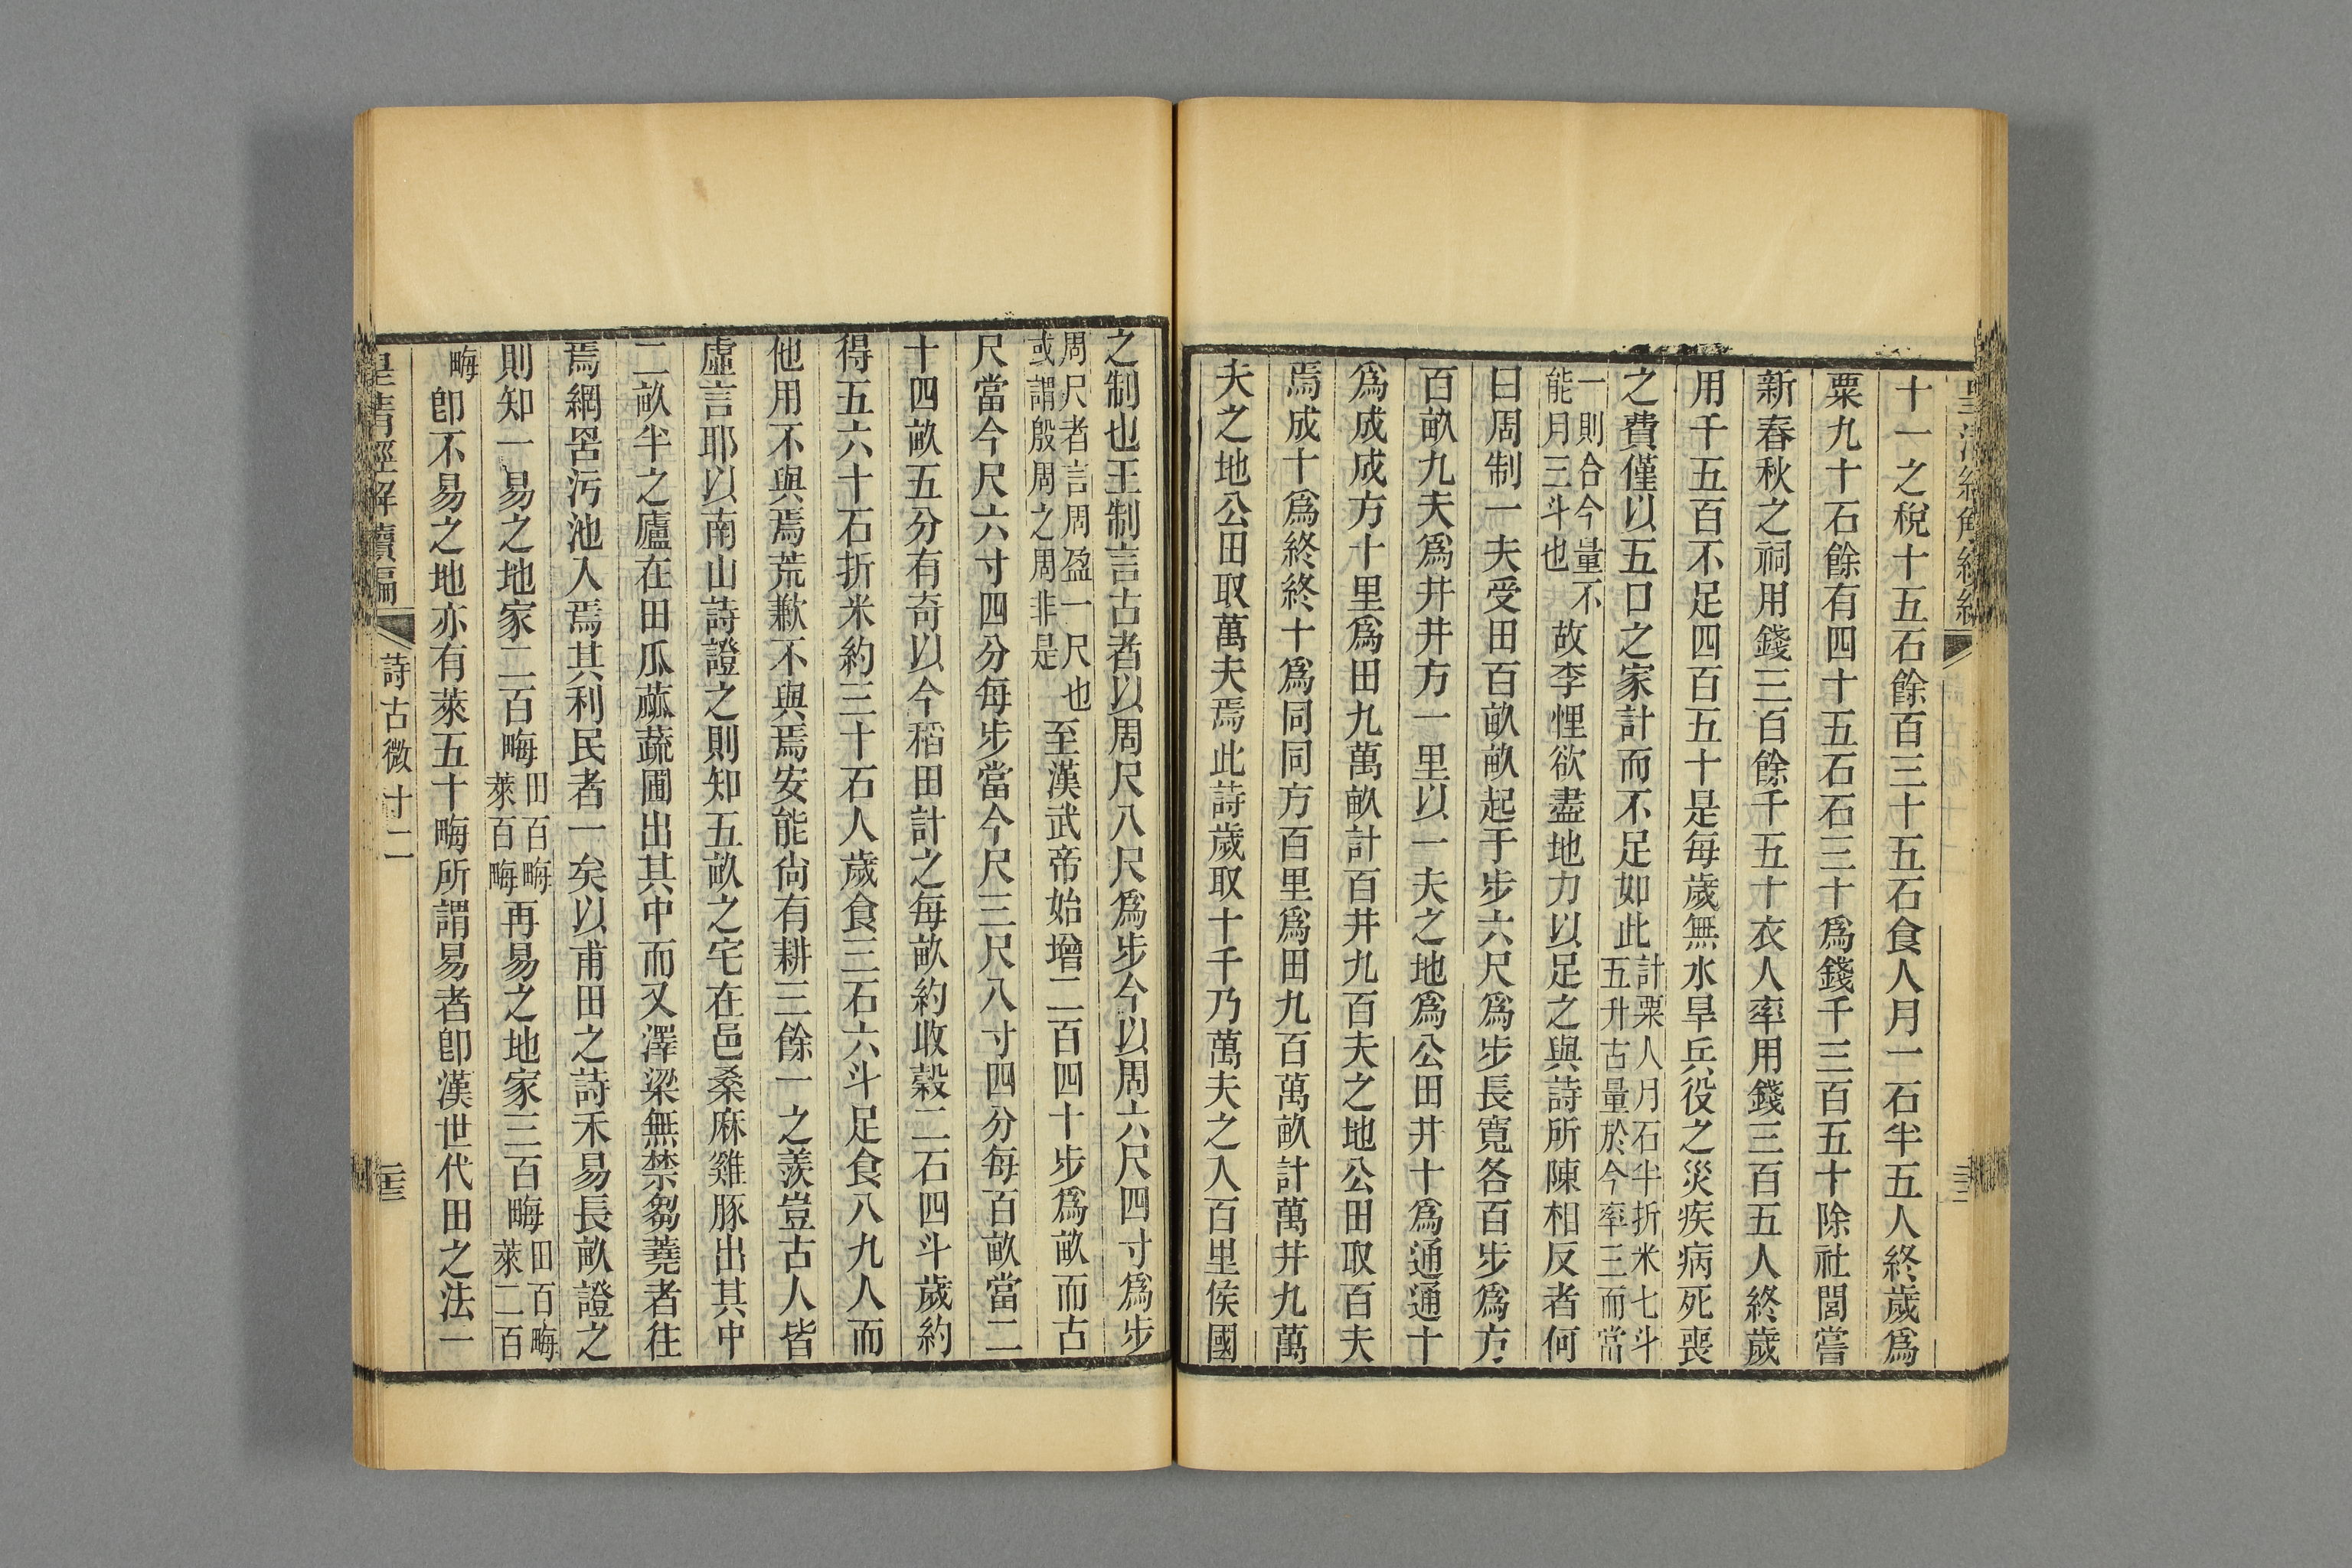 十一之稅十五石餘百三十五石食人月一石半五人終歲爲
粟九十石餘有四十五石石三十爲錢千三百五十除社閭嘗
新春秋之祠用錢三百餘千五十衣人率用錢三百五人終歲
用千五百不足四百五十是每歲無水旱兵役之災疾病死喪
之費僅以五口之家計而不足如此計粟人月石半折米七斗五升古量於今率三而當
一則合今量不能月三斗也故李悝欲盡地力以足之與詩所陳相反者何
曰周制一夫受田百畝畝起于步六尺爲步長寬各百步爲方
百畝九夫爲井井方一里以一夫之地爲公田井十爲通通十
爲成成方十里爲田九萬畝計百井九百夫之地公田取百夫
焉成十爲終終十爲同同方百里爲田九百萬畝計萬井九萬
夫之地公田取萬夫焉此詩歲取十千乃萬夫之入百里侯國
之制也王制言古者以周尺八尺爲步今以周六尺四寸爲步
周尺者言周盈一尺也或謂殷周之周非是至漢武帝始增二百四十步爲畝而古
尺當今尺六寸四分每步當今尺三尺八寸四分每百畝當二
十四畝五分有奇以今稻田計之每畝約收穀二石四斗歲約
得五六十石折米約三十石人歲食三石六斗足食八九人而
他用不與焉荒歉不與焉安能尙有耕三餘一之羨豈古人皆
虛言耶以南山詩證之則知五畝之宅在邑桑麻雞豚出其中
二畝半之廬在田瓜蓏蔬圃出其中而又澤梁無禁芻蕘者往
焉網罟污池入焉其利民者一矣以甫田之詩禾易長畝證之
則知一易之地家二百畮田百畮萊百畮再易之地家三百畮田百畮萊二百
畮卽不易之地亦有萊五十畮所謂易者卽漢世代田之法一
皇淸經解續編
詩古微十二